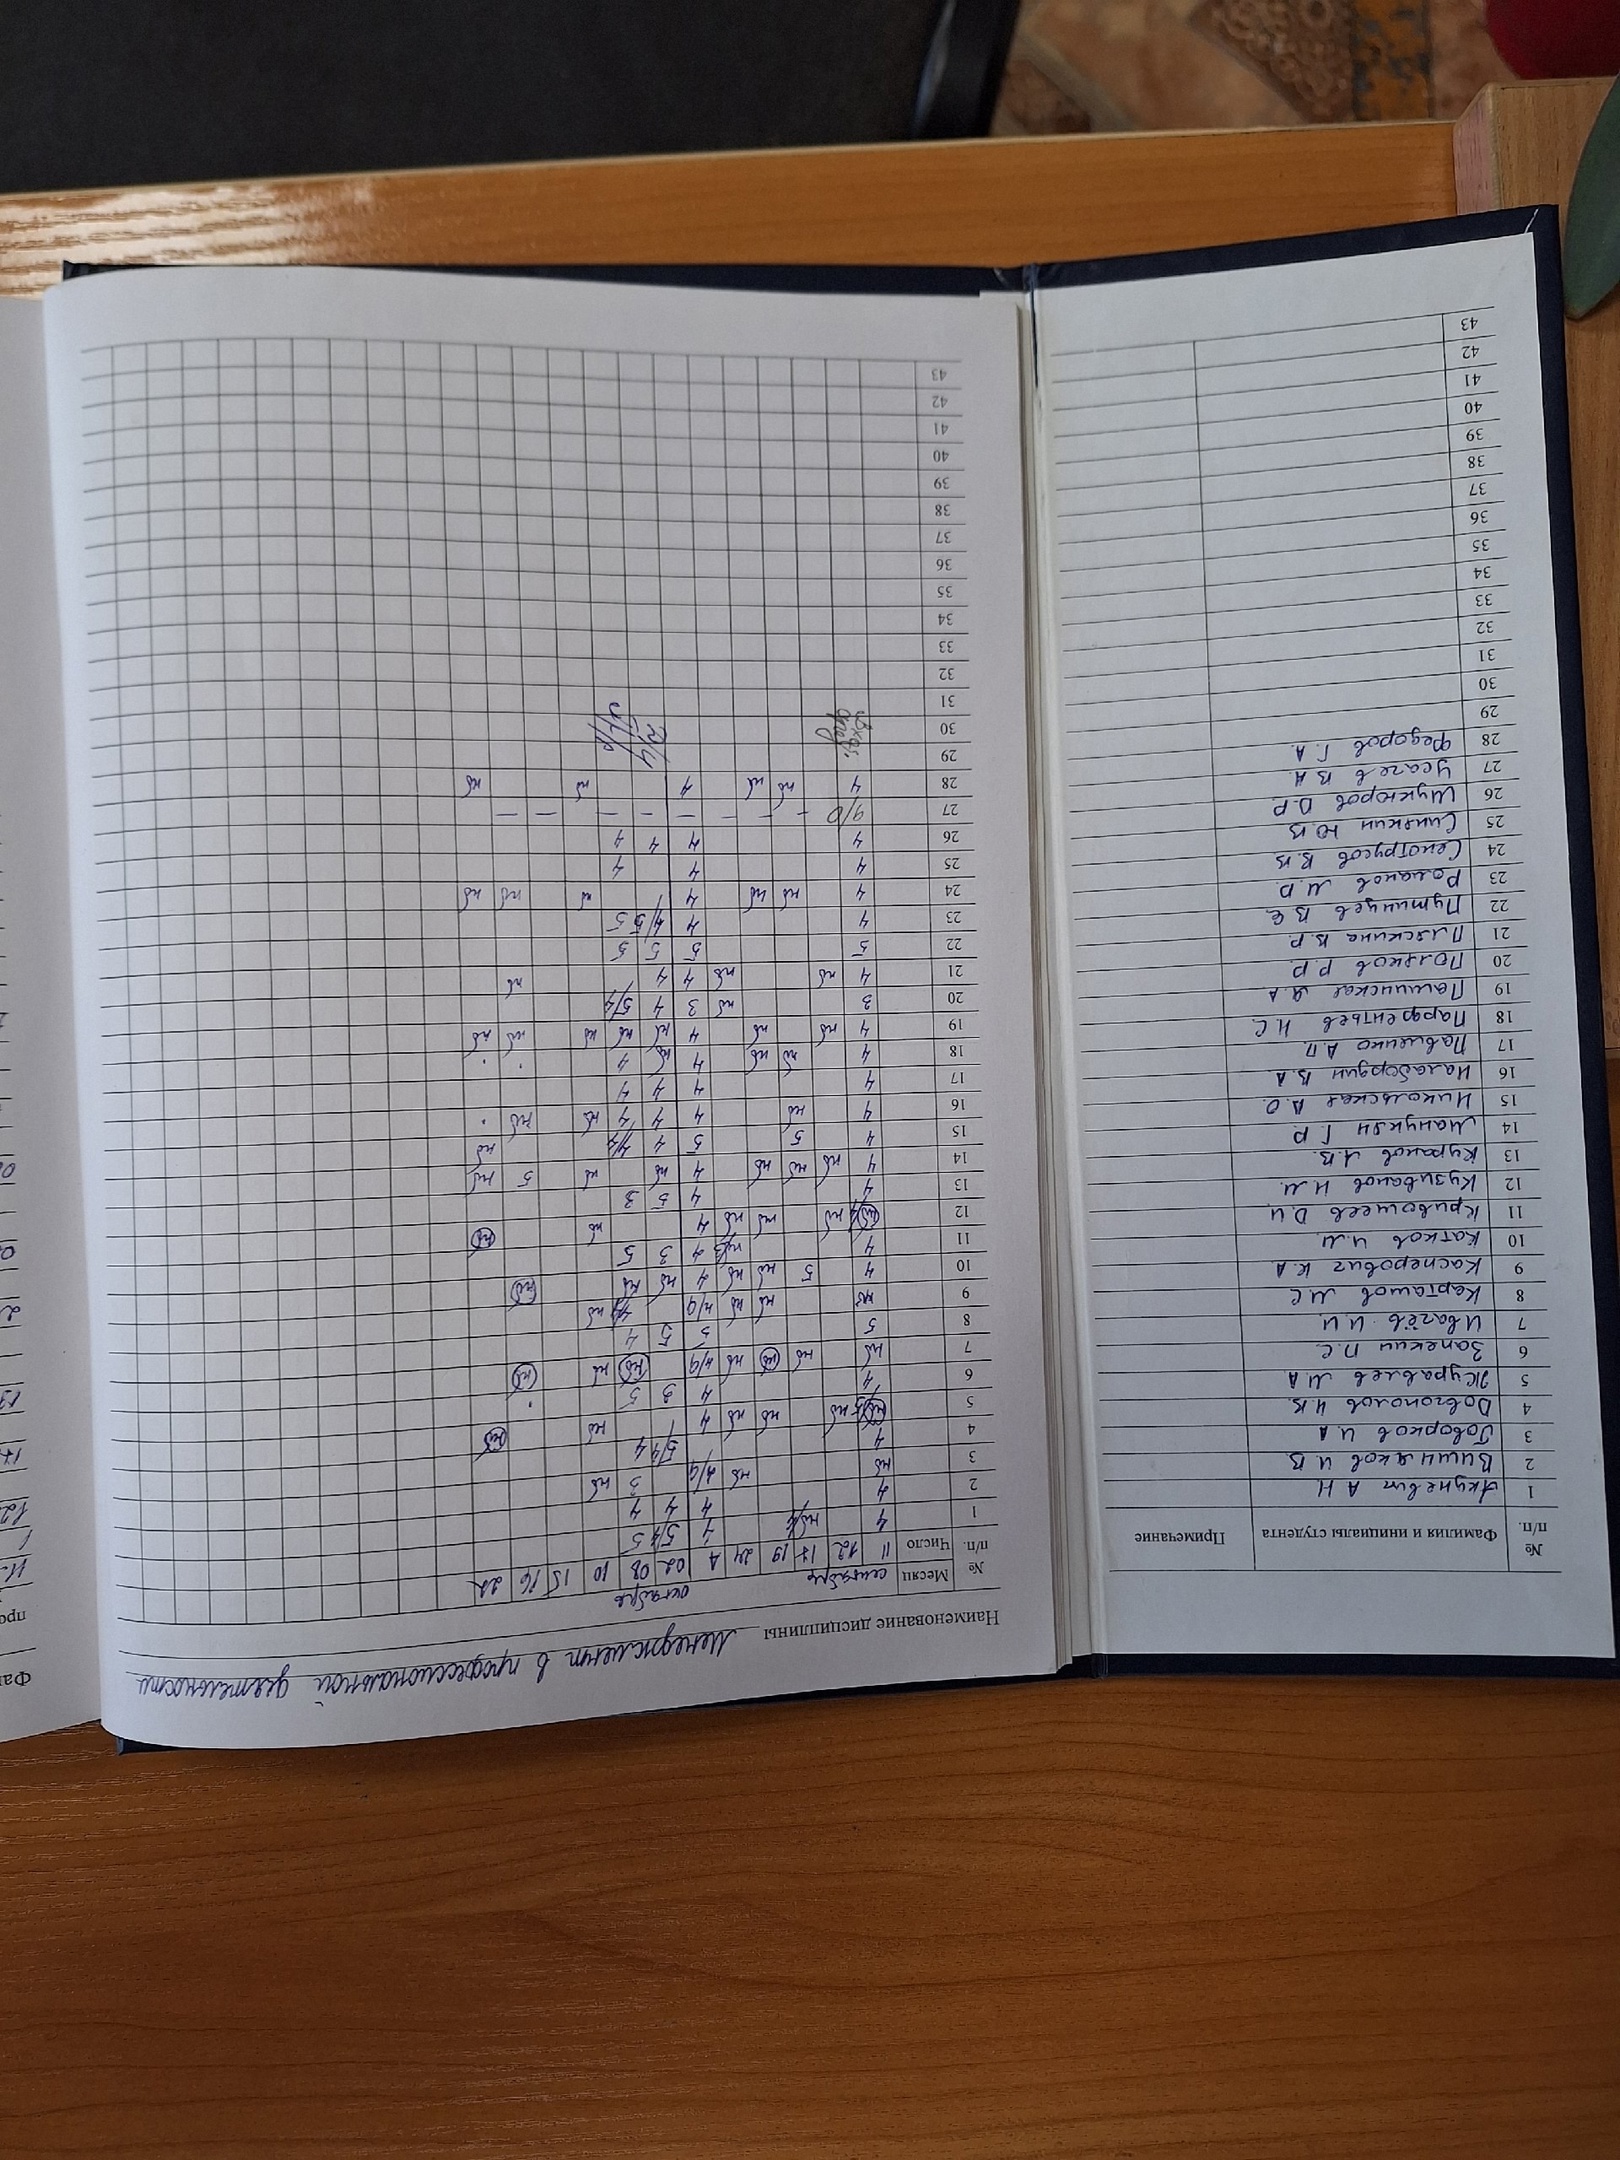 № п/п. Фамилия и инициалы студента Примечание
1 Акуневич А Н
2 Вишняков И. В.
3 Говорков И. А
4 Довгополов Н.В.
5 Журавлев М. А
6 Запекин П. С.
7 Ивачёв И. И.
8 Карташов М. С
9 Касперович К. А.
10 Катков И. М.
11 Кривошеев D. И.
12 Кузиванов Н. М.
13 Куранов А. В.
14 Манукян Г. Р.
15 Никольская А. О.
16 Налабордин В. А.
17 Павленко А. П.
18 Парфентьев Н. С.
19 Пашинская Я. А
20 Поляков Р. Р.
21 Пляскина В. Р.
22 Путинцев В. Е.
23 Романов М. D.
24 Сенотрусов В. В
25 Синякин Ю. В
26 Шукюров D. Р.
27 Усачев В А.
28 Федоров Г. А.
29
30
31
32
33
34
35
36
37
38
39
40
41
42
43
Наименование дисциплины Менеджмент в профессиональной деятельности
№ п/п. Месяц сентябрь октябрь
Число 11 12 17 19 24 А 02 08 10 15 16 22
1 4 нб/4 4 5/4 5
2 4 4 4 4
3 нб нб н/а 3 нб
4 4 5/4 4
5 нб/5 нб нб нб 4 нб нб
6 4 4 3 5
7 нб нб нб нб н/а нб нб нб
8 5 5 5 4
9 нб нб нб н/а 4/4 нб
10 4 5 нб нб 4 нб нб нб
11 4 нб/3 4 3 5
12 нб/4 нб нб нб 4 нб нб
13 4 4 5 3
14 4 нб нб нб 4 нб нб 5 нб
15 4 5 5 4 4/4 нб
16 4 нб 4 4 4 нб нб
17 4 4 4 4
18 4 нб нб 4 нб 4
19 4 нб нб 4 нб нб нб нб нб
20 3 нб 3 4 5/4
21 4 нб нб 4 4 нб
22 5 5 5 5
23 4 4 4/5 5
24 4 нб нб 4 нб нб нб
25 4 4 4
26 4 4 4 4
27 — — — — — — — —
28 4 нб нб 4 нб нб
29
30
31
32
33
34
35
36
37
38
39
40
41
42
43
Фа
про